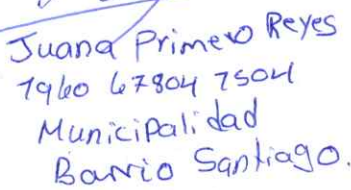 Juana Primero Reyes
1960 67804 7504
Municipalidad
Barrio Santiago.